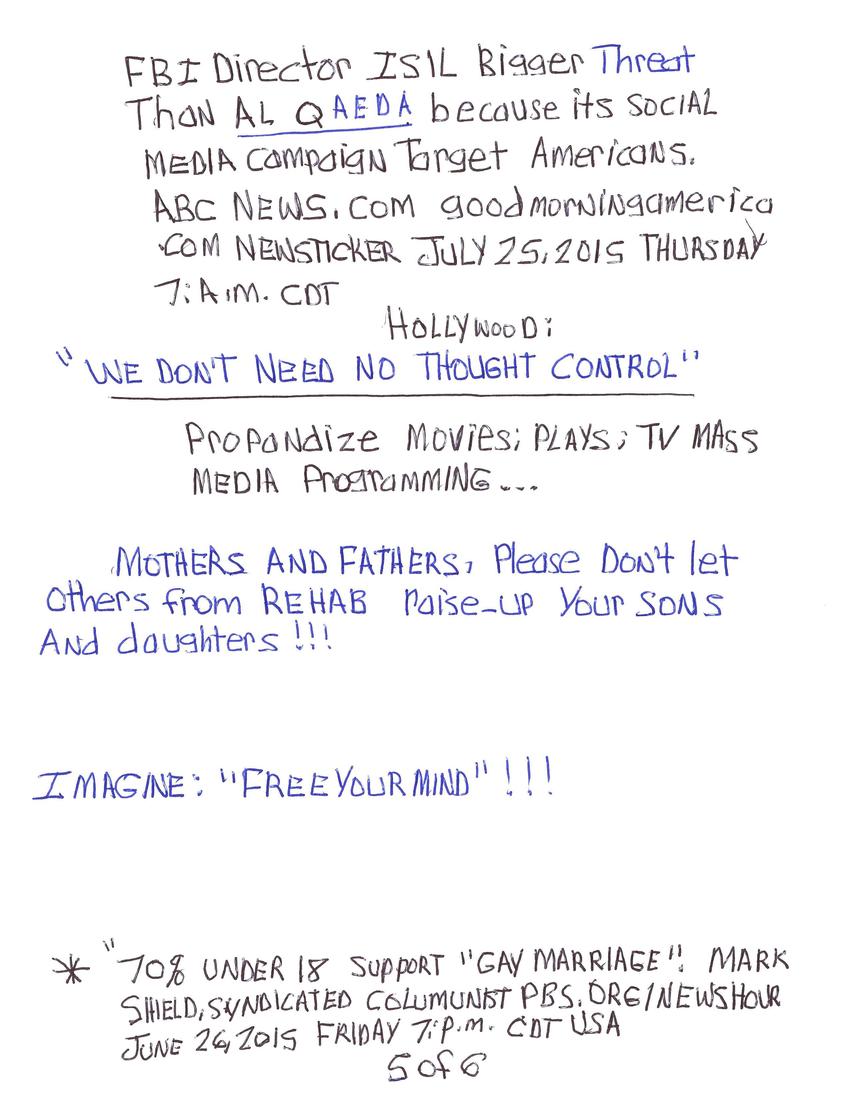 FBI Director ISIL Bigger Threat
Than AL QAEDA because its SOCIAL
MEDIA Campaign Target Americans.
ABC NEWS.COM goodmorningamerica
.COM NEWSTICKER JULY 25, 2015 THURSDAY
7:A.M. CDT
HOLLYWOOD:
"WE DON'T NEED NO THOUGHT CONTROL"
Propandize Movies; PLAYS; TV MASS
MEDIA Programming...
MOTHERS AND FATHERS, Please Don't let
Others from REHAB Raise-up Your SONS
And daughters!!!
IMAGINE: "FREE YOUR MIND"!!!
* "70% UNDER 18 Support "GAY MARRIAGE". MARK
SHIELD, SYNDICATED COLUMUNIST PBS.ORG/NEWSHOUR
JUNE 26, 2015 FRIDAY 7:P.M. CDT USA
5 of 6